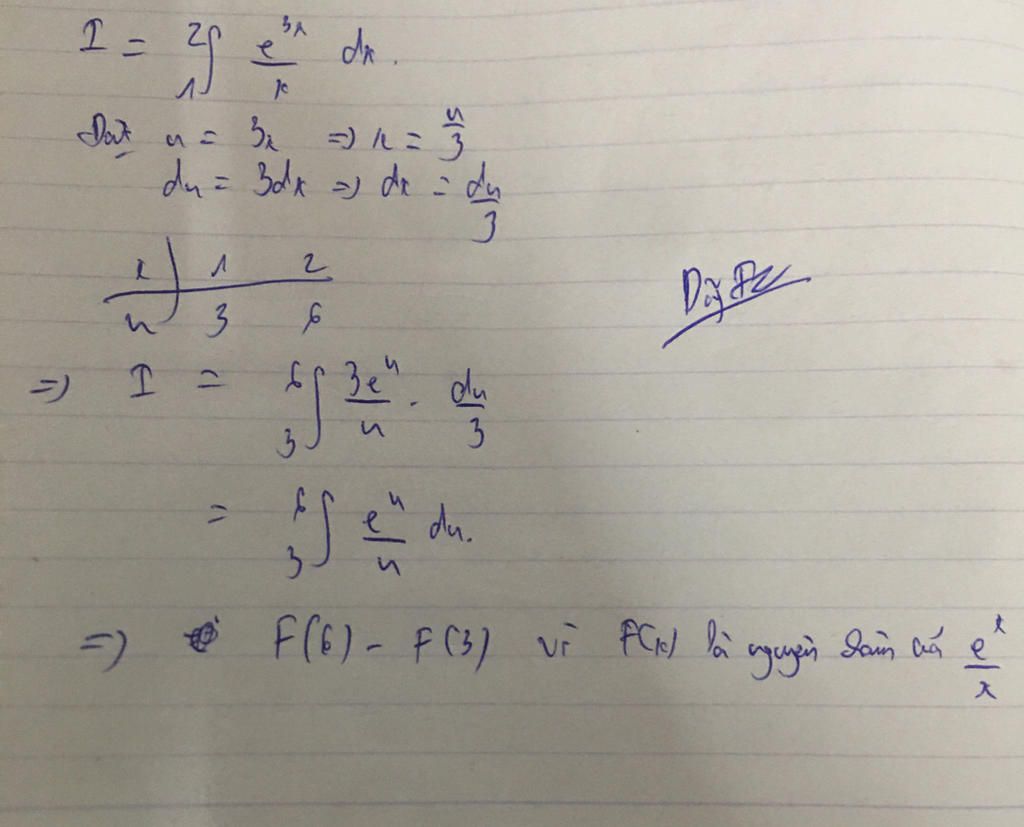 I = ₁∫² e^{3x}/x dx.
Đặt u = 3x ⇒ x = u/3
du = 3dx ⇒ dx = du/3
x | 1 2
u | 3 6
⇒ I = ₃∫⁶ 3e^u/u . du/3
= ₃∫⁶ e^u/u du.
⇒ F(6) - F(3) vì F(x) là nguyên hàm của e^x/x